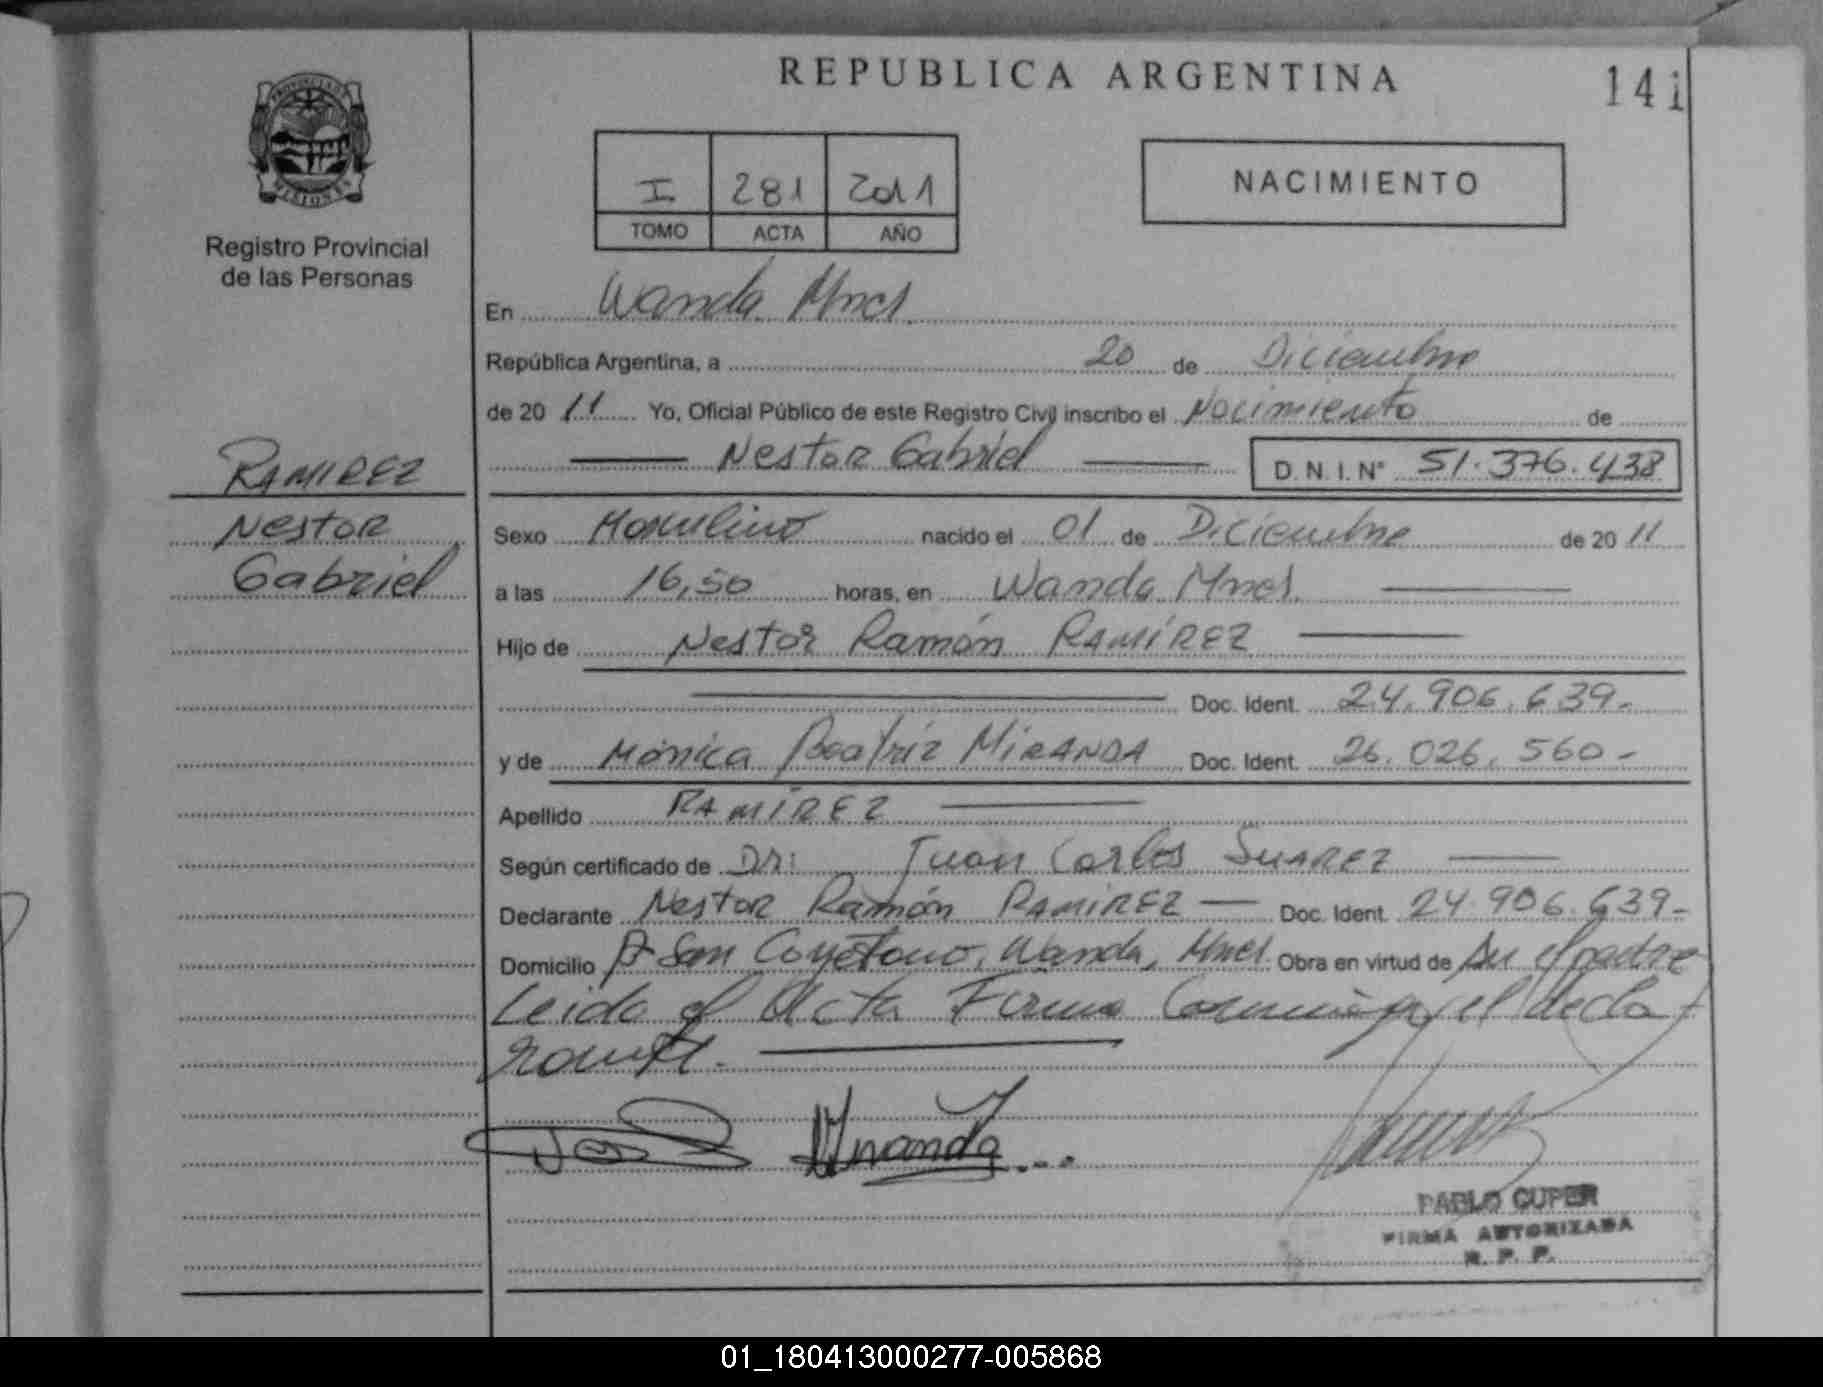 REPUBLICA ARGENTINA
141
PROVINCIA DE MISIONES
Registro Provincial
de las Personas
I 281 2011
TOMO ACTA AÑO
NACIMIENTO
En Wanda Mnes
República Argentina, a 20 de Diciembre
de 20 11 Yo, Oficial Público de este Registro Civil inscribo el Nacimiento de
Nestor Gabriel D.N.I.Nº 51.376.438
RAMIREZ
Nestor
Gabriel
Sexo Masculino nacido el 01 de Diciembre de 20 11
a las 16,50 horas, en Wanda Mnes.
Hijo de Nestor Ramón RAMÍREZ
Doc. Ident. 24.906.639.-
y de Mónica Beatriz MIRANDA Doc. Ident. 26.026.560-
Apellido RAMÍREZ
Según certificado de Dr: Juan Carlos SUAREZ
Declarante Nestor Ramón RAMIREZ Doc. Ident. 24.906.639-
Domicilio San Cayetano, Wanda, Mnes. Obra en virtud de padre
Leida el Acta Firma el decla
rante.
Miranda
PABLO CUPER
FIRMA AUTORIZADA
R. P. P.
01_180413000277-005868